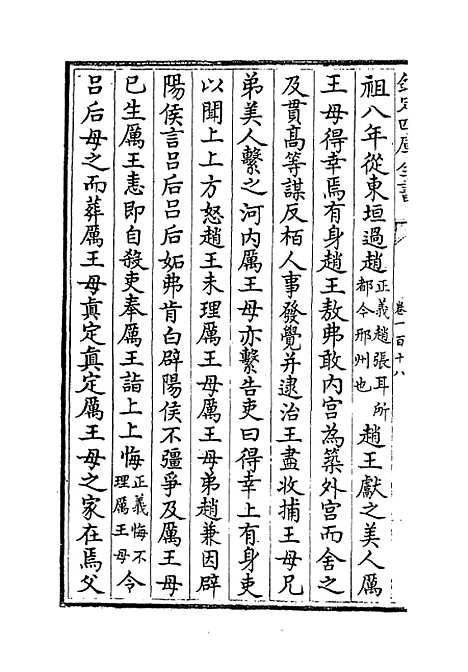 欽定四庫全書
卷一百十八
祖八年從東垣過趙正義趙張耳所都今邢州也趙王獻之美人厲
王母得幸焉有身趙王敖弗敢内宫為築外宫而舍之
及貫髙等謀反栢人事發覺并逮治王盡收捕王母兄
弟美人繫之河内厲王母亦繫告吏曰得幸上有身吏
以聞上上方怒趙王未理厲王母厲王母弟趙兼因辟
陽侯言吕后吕后妬弗肯白辟陽侯不彊爭及厲王母
已生厲王恚即自殺吏奉厲王詣上上悔正義悔不理厲王母令
吕后母之而葬厲王母真定真定厲王母之家在焉父